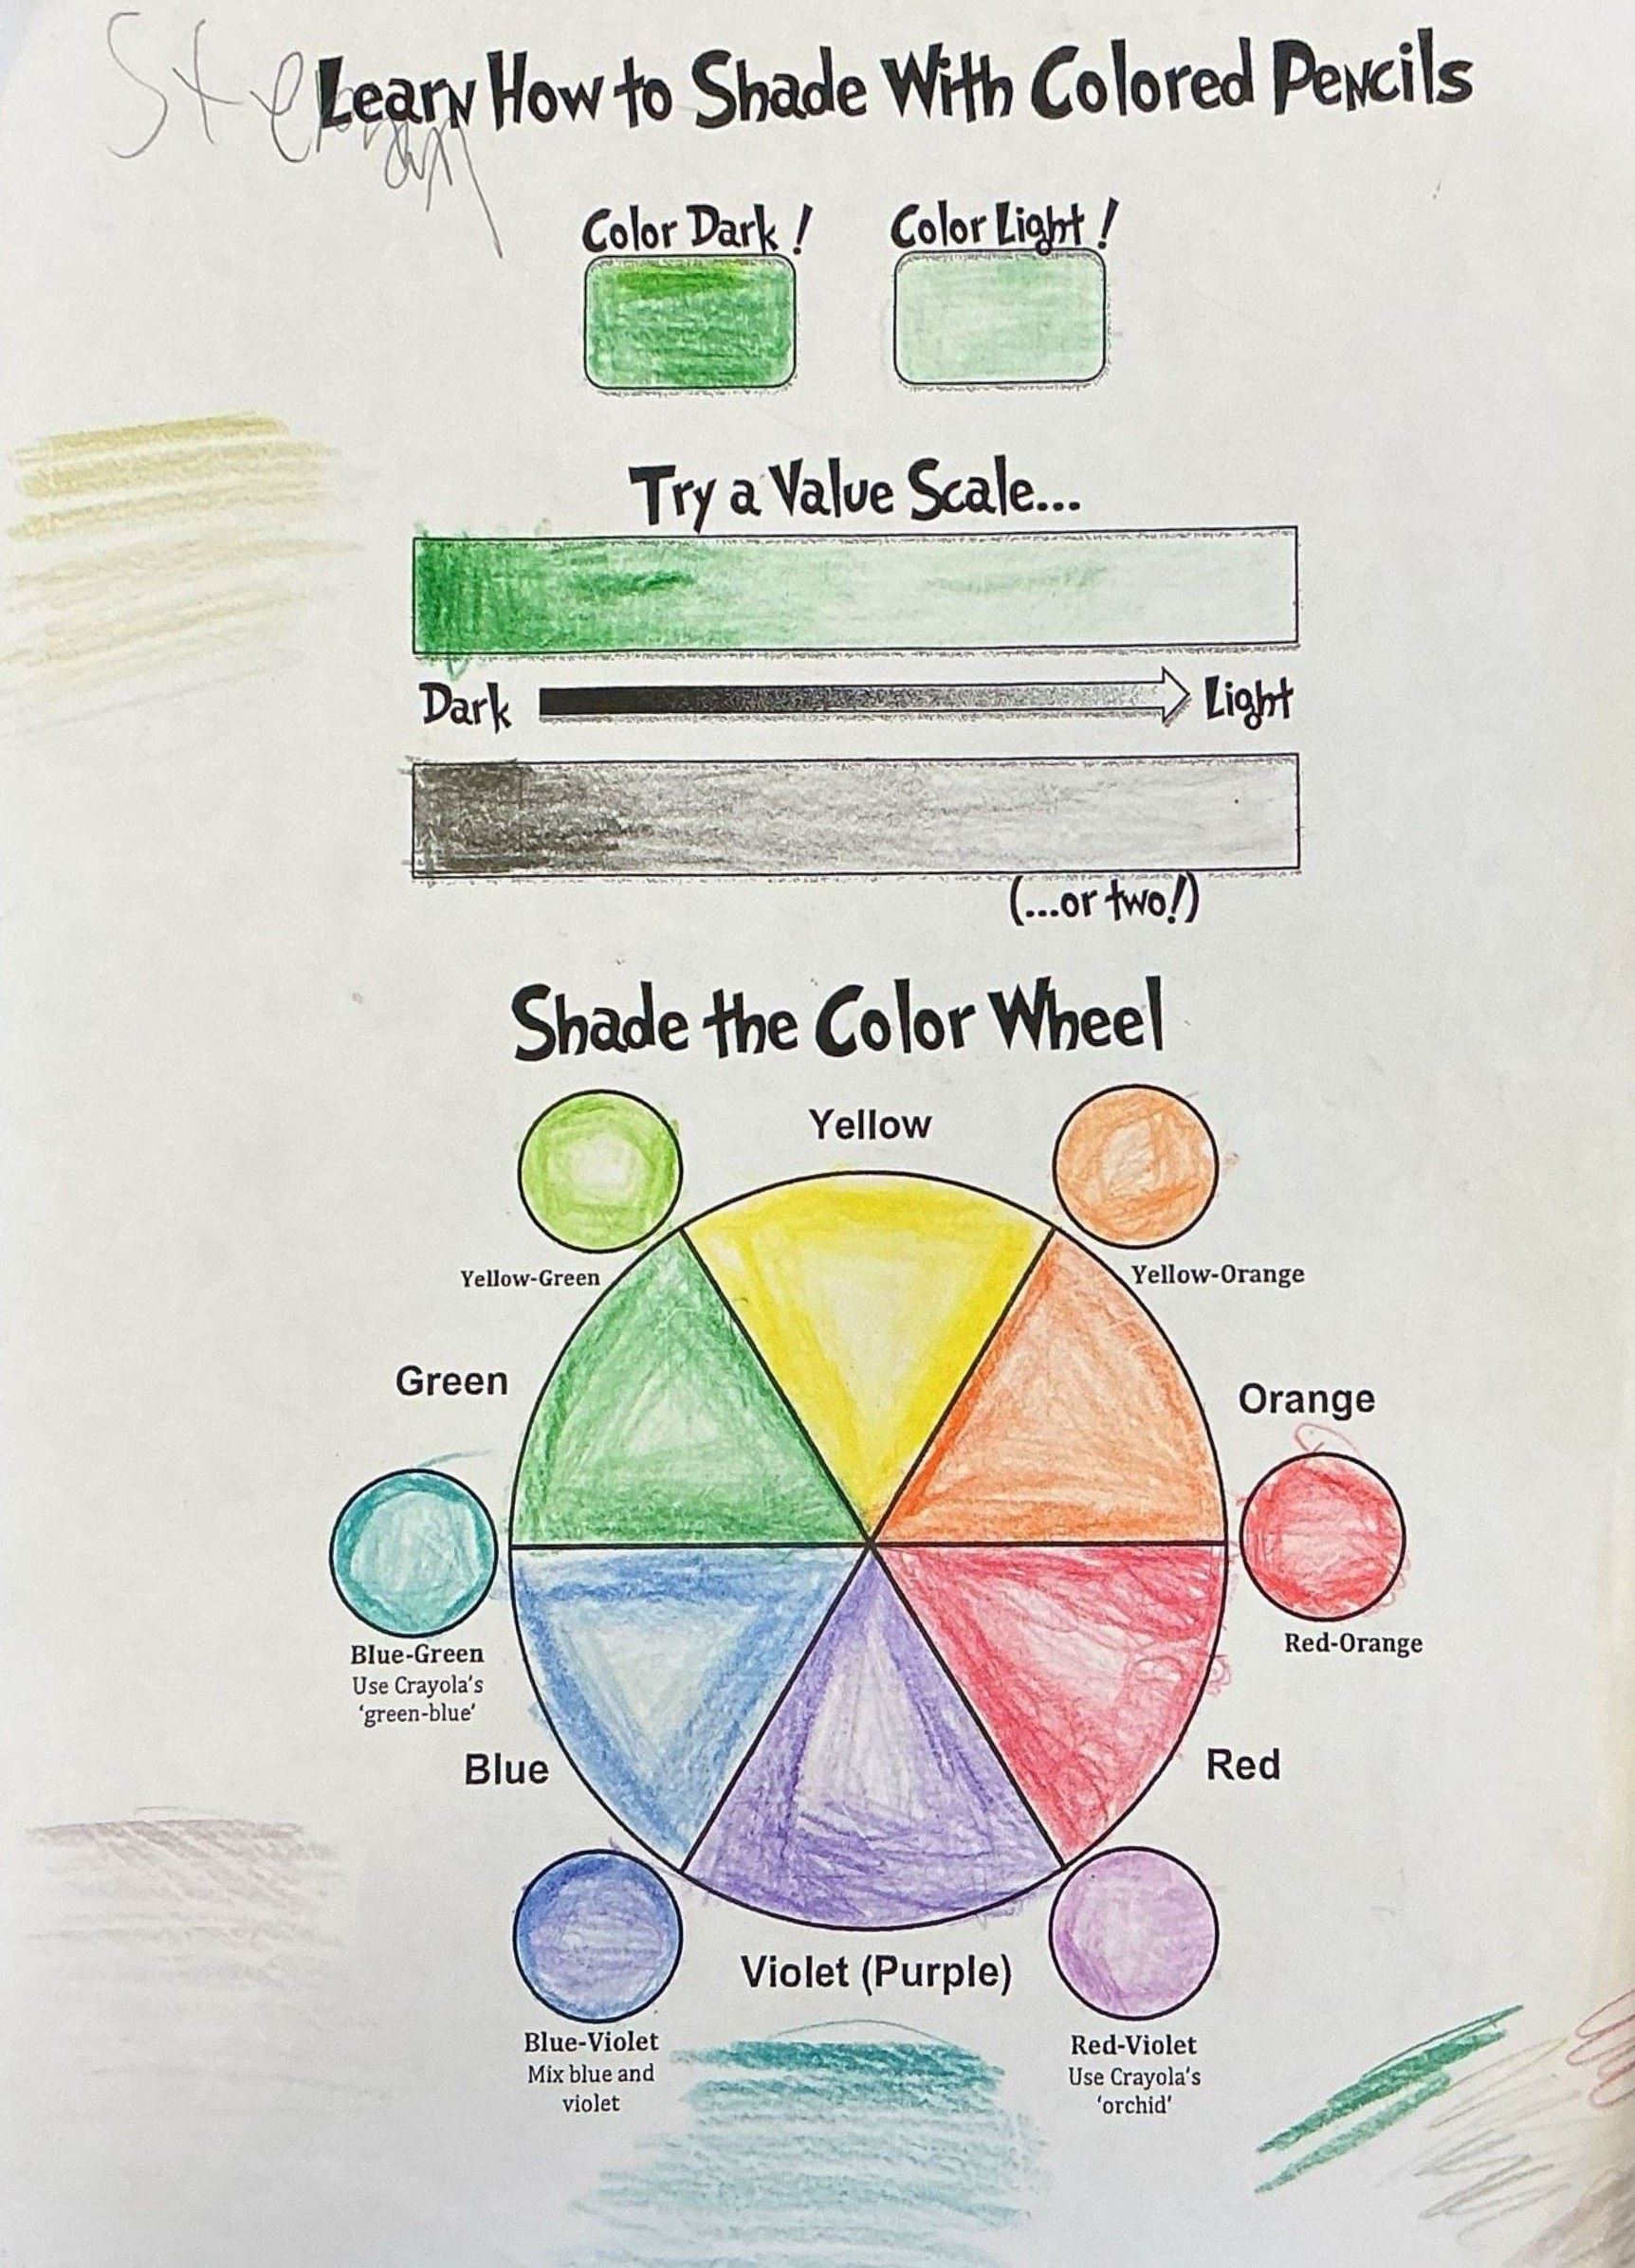 Learn How to Shade With Colored Pencils
Color Dark! Color Light!
Try a Value Scale...
Dark Light
(...or two!)
Shade the Color Wheel
Yellow
Yellow-Green Yellow-Orange
Green Orange
Blue-Green
Use Crayola's
'green-blue'
Red-Orange
Blue Red
Violet (Purple)
Blue-Violet
Mix blue and
violet
Red-Violet
Use Crayola's
'orchid'